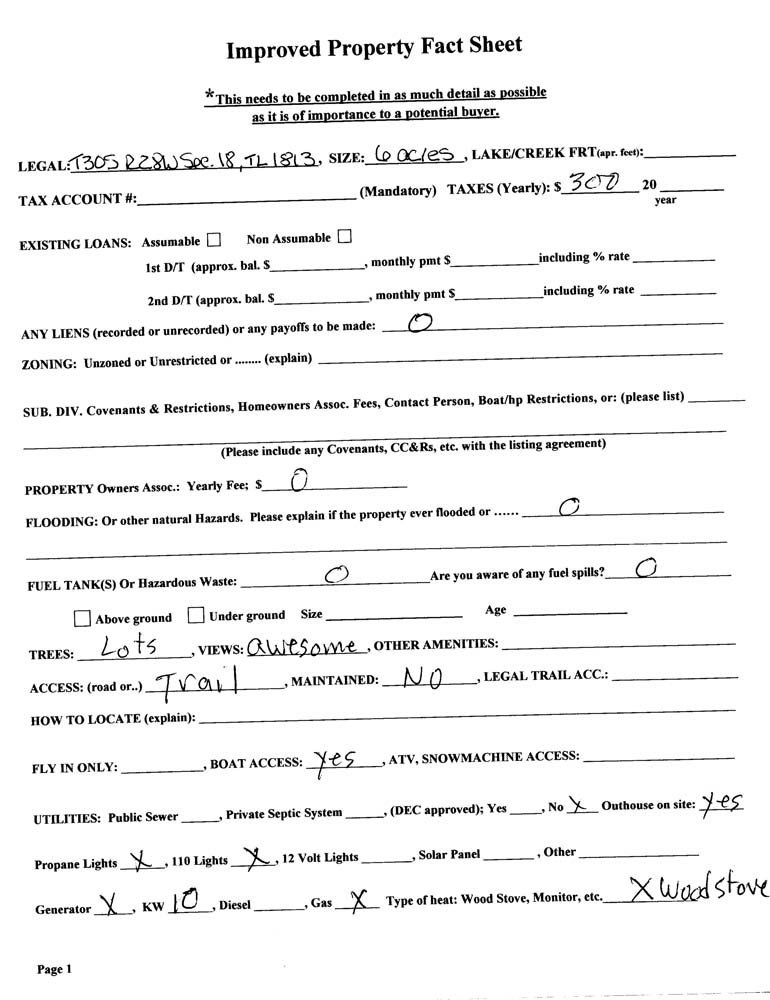 Improved Property Fact Sheet
*This needs to be completed in as much detail as possible
as it is of importance to a potential buyer.
LEGAL: T30S R28W Sec. 18, TL 1813, SIZE: 6 acres, LAKE/CREEK FRT(apr. feet):
TAX ACCOUNT #: (Mandatory) TAXES (Yearly): $ 300 20
year
EXISTING LOANS: Assumable ☐ Non Assumable ☐
1st D/T (approx. bal. $ , monthly pmt $ including % rate
2nd D/T (approx. bal. $ , monthly pmt $ including % rate
ANY LIENS (recorded or unrecorded) or any payoffs to be made: 0
ZONING: Unzoned or Unrestricted or ........ (explain)
SUB. DIV. Covenants & Restrictions, Homeowners Assoc. Fees, Contact Person, Boat/hp Restrictions, or: (please list)
(Please include any Covenants, CC&Rs, etc. with the listing agreement)
PROPERTY Owners Assoc.: Yearly Fee; $ 0
FLOODING: Or other natural Hazards. Please explain if the property ever flooded or ...... 0
FUEL TANK(S) Or Hazardous Waste: 0 Are you aware of any fuel spills? 0
☐ Above ground ☐ Under ground Size Age
TREES: Lots, VIEWS: awesome, OTHER AMENITIES:
ACCESS: (road or..) Trail, MAINTAINED: NO, LEGAL TRAIL ACC.:
HOW TO LOCATE (explain):
FLY IN ONLY: , BOAT ACCESS: yes, ATV, SNOWMACHINE ACCESS:
UTILITIES: Public Sewer , Private Septic System , (DEC approved); Yes , No X Outhouse on site: yes
Propane Lights X, 110 Lights X, 12 Volt Lights , Solar Panel , Other
Generator X, KW 10, Diesel , Gas X Type of heat: Wood Stove, Monitor, etc. X Wood stove
Page 1